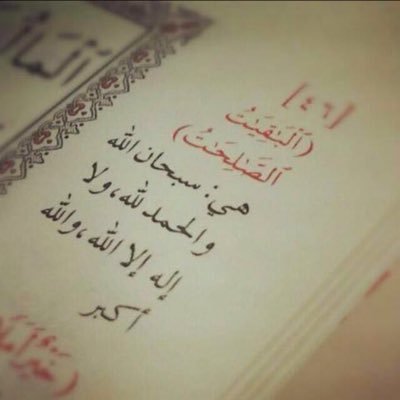 [٤٦]
(ٱلْبَـٰقِيَـٰتُ
ٱلصَّـٰلِحَـٰتُ)
هي: سبحان الله
والحمد لله، ولا
إله إلا الله، والله
أكبر